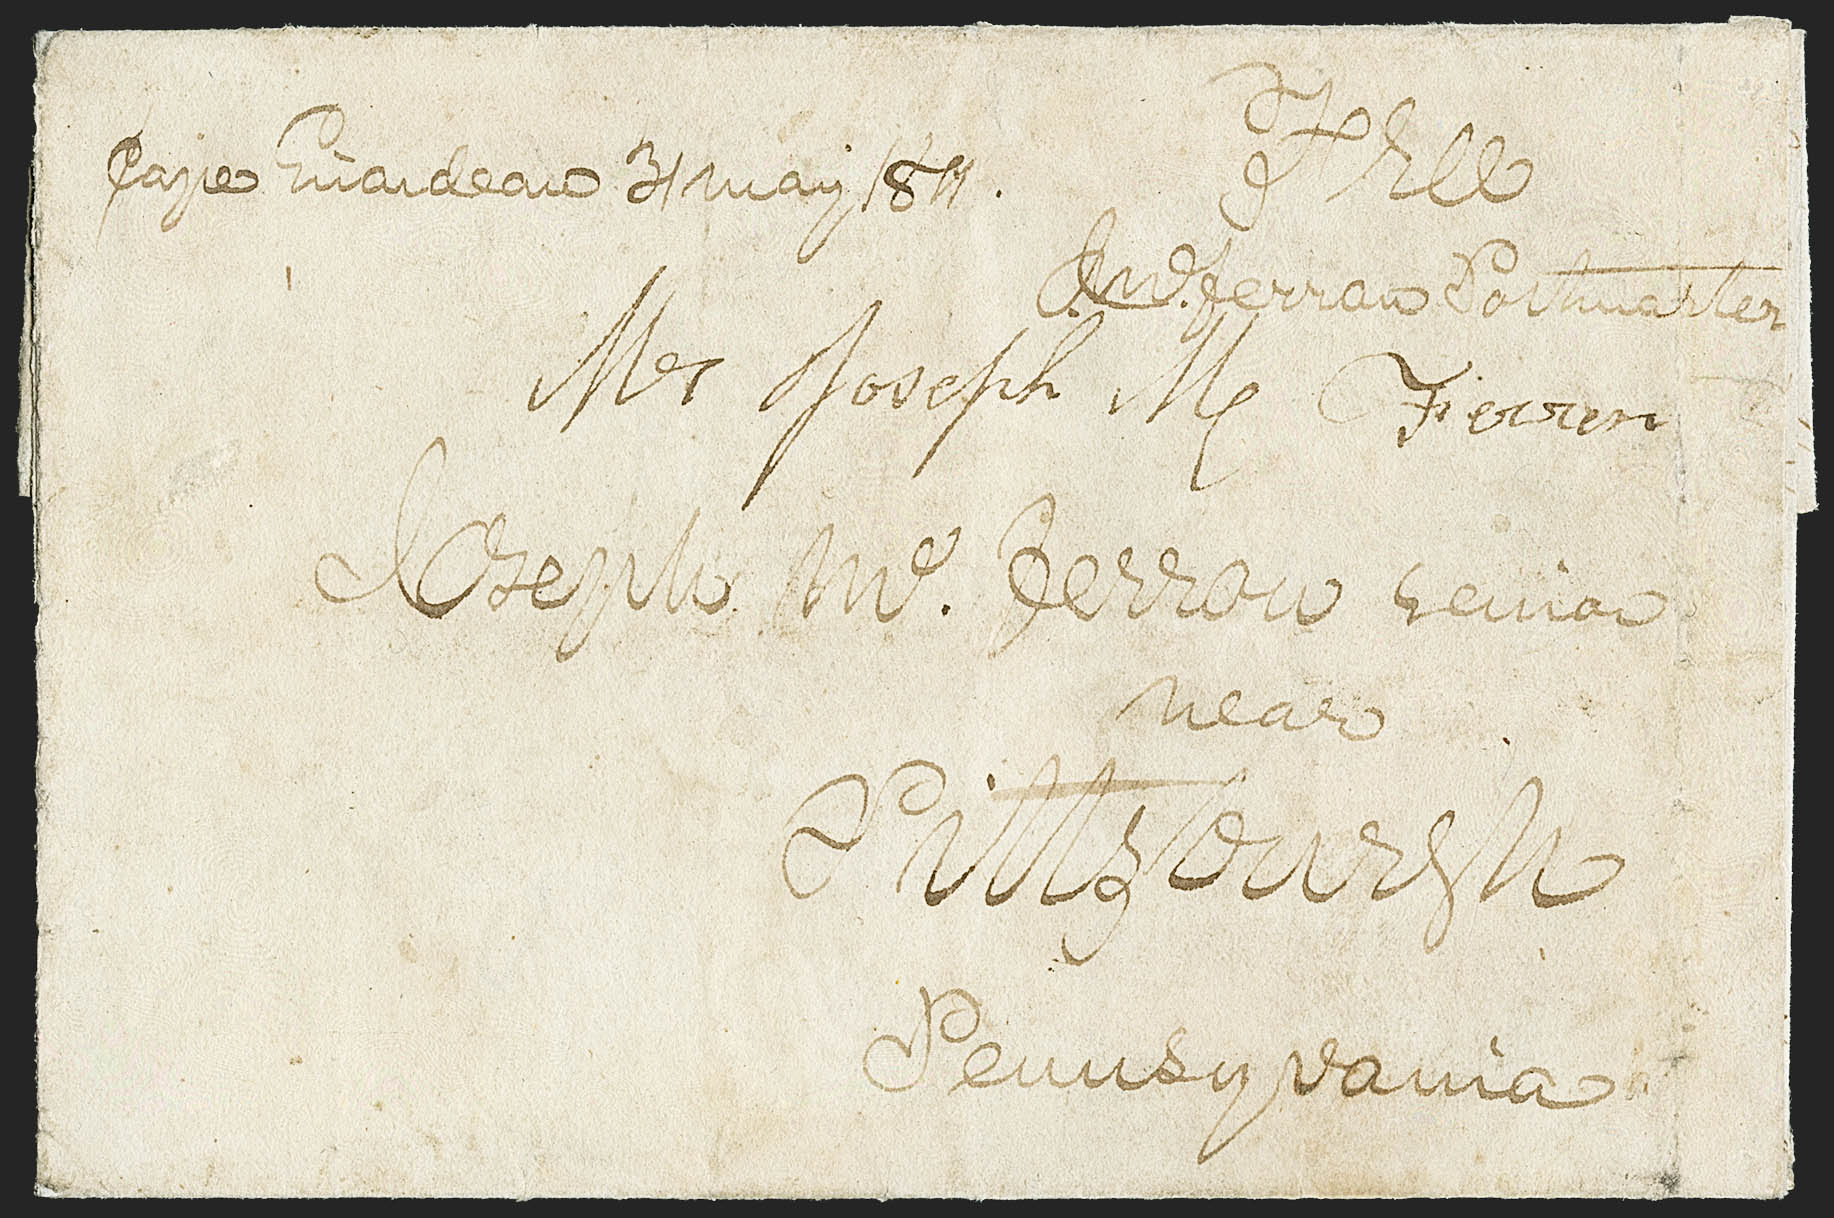 Cape Girardeau 31 may 1811.
Free
And. Ferrau Postmaster
Mr Joseph Mc Ferren
Joseph Mc. Ferrau senior
near
Pittsburgh
Pennsyvania